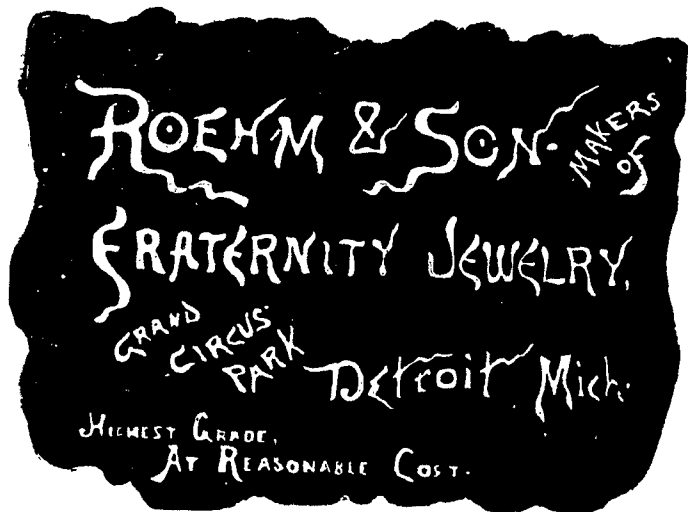 ROEHM & SON- MAKERS OF
FRATERNITY JEWELRY,
GRAND CIRCUS PARK Detroit Mich.
HIGHEST GRADE,
AT REASONABLE COST.